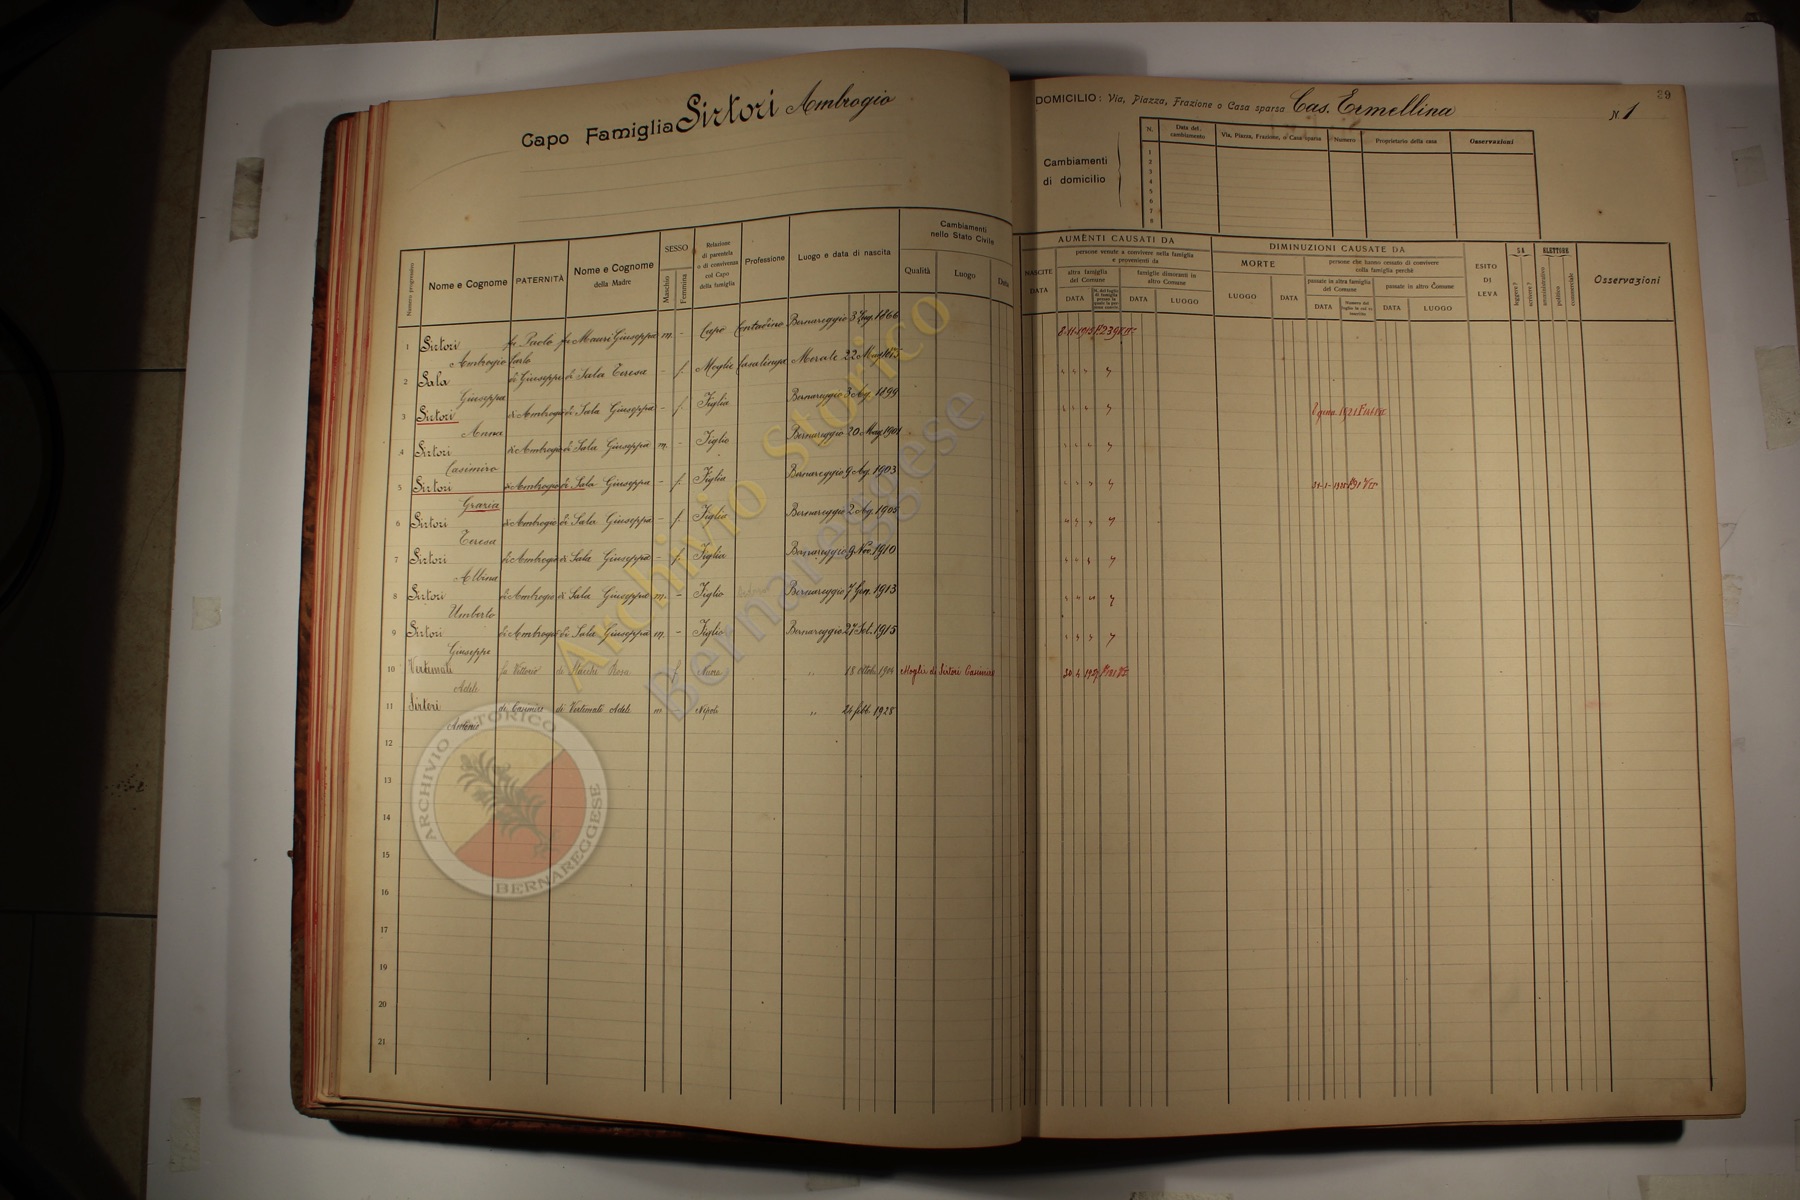 Capo Famiglia Sirtori Ambrogio
Numero progressivo
Nome e Cognome
PATERNITÀ
Nome e Cognome
della Madre
SESSO
Maschio
Femmina
Relazione
di parentela
o di convivenza
col Capo
della famiglia
Professione
Luogo e data di nascita
Cambiamenti
nello Stato Civile
Qualità
Luogo
Data
1 Sirtori fu Paolo fu Mauri Giuseppa m. - Capo Contadino Bernareggio 3 1866
Ambrogio Carlo
2 Sala di Giuseppe di Sala Teresa - f. Moglie Casalinga Merate 22
Giuseppa
3 Sirtori di Ambrogio di Sala Giuseppa - f. Figlia Bernareggio 3 Ag. 1899
Anna
4 Sirtori di Ambrogio di Sala Giuseppa m. - Figlio Bernareggio 20 Mag. 1901
Casimiro
5 Sirtori di Ambrogio di Sala Giuseppa - f. Figlia Bernareggio 9 Ag. 1903
Grazia
6 Sirtori di Ambrogio di Sala Giuseppa - f. Figlia Bernareggio 2 Ag. 1905
Teresa
7 Sirtori di Ambrogio di Sala Giuseppa - f. Figlia Bernareggio 9 Nov. 1910
Albina
8 Sirtori di Ambrogio di Sala Giuseppa m. - Figlio Bernareggio 7 Gen. 1913
Umberto
9 Sirtori di Ambrogio di Sala Giuseppa m. - Figlio Bernareggio 27 Set. 1915
Giuseppe
10 Vertemati fu Vittorio di Rosa f Nuora " 18 Ottobre 1904 Moglie di Sirtori Casimiro
Adele
11 Sirtori di Casimiro di Vertemati Adele m Nipote " 24 febb. 1928
Antonio
12
13
14
15
16
17
18
19
20
21
ARCHIVIO STORICO
BERNAREGGESE
Archivio Storico
Bernareggese
39
DOMICILIO: Via, Piazza, Frazione o Casa sparsa Cas. Ermellina N. 1
Cambiamenti
di domicilio
N.
Data del
cambiamento
Via, Piazza, Frazione, o Casa sparsa
Numero
Proprietario della casa
Osservazioni
1
2
3
4
5
6
7
8
AUMENTI CAUSATI DA
NASCITE
DATA
persone venute a convivere nella famiglia
e provenienti da
altra famiglia
del Comune
DATA
famiglie dimoranti in
altro Comune
DATA
LUOGO
DIMINUZIONI CAUSATE DA
MORTE
LUOGO
DATA
persone che hanno cessato di convivere
colla famiglia perchè
passate in altra famiglia
del Comune
DATA
passate in altro Comune
DATA
LUOGO
ESITO
DI
LEVA
SA
leggere?
scrivere?
ELETTORE
amministrativo
politico
commerciale
Osservazioni